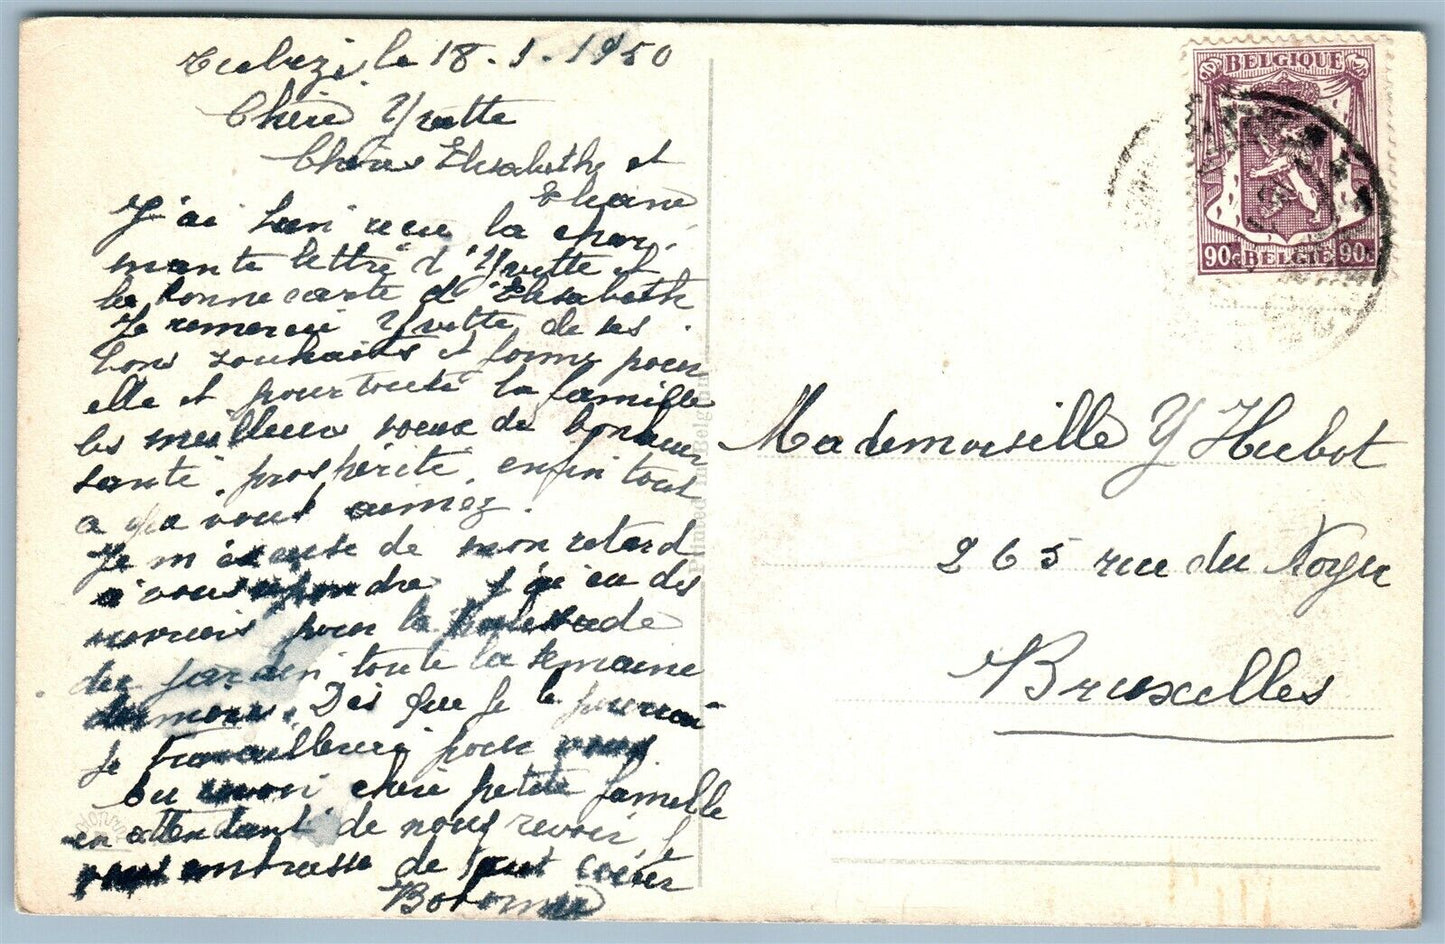 Tubize le 18.1.1950
Chère Yvette
Chères Elisabeth et
Eliane
J'ai bien recu la char-
mante lettre d'Yvette et
la bonne carte d'Elisabeth
Je remercie Yvette de ses
bons souhaits et forme pour
elle et pour toute la famille
les meilleurs voeux de bonheur
santé, prospérité, enfin tout
a que vous aimez.
Je m'excuse de mon retard
à vous répondre j'ai eu des
pour la
du jardin toute la semaine
Dès que je le pourrai
je travaillerai pour vous
Au revoir chère petite famille
en attendant de nous revoir, je
vous embrasse de tout coeur
BELGIQUE
90c BELGIE 90c
Printed in Belgium
Mademoiselle Y Hubot
265 rue du Noyer
Bruxelles